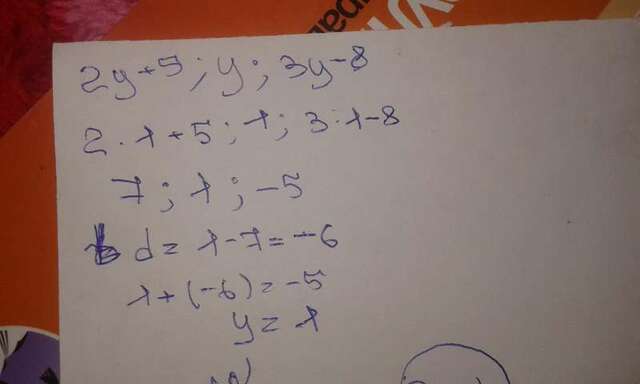 2y+5; y; 3y-8
2·1+5; 1; 3·1-8
7; 1; -5
d= 1-7=-6
1+(-6)=-5
y=1